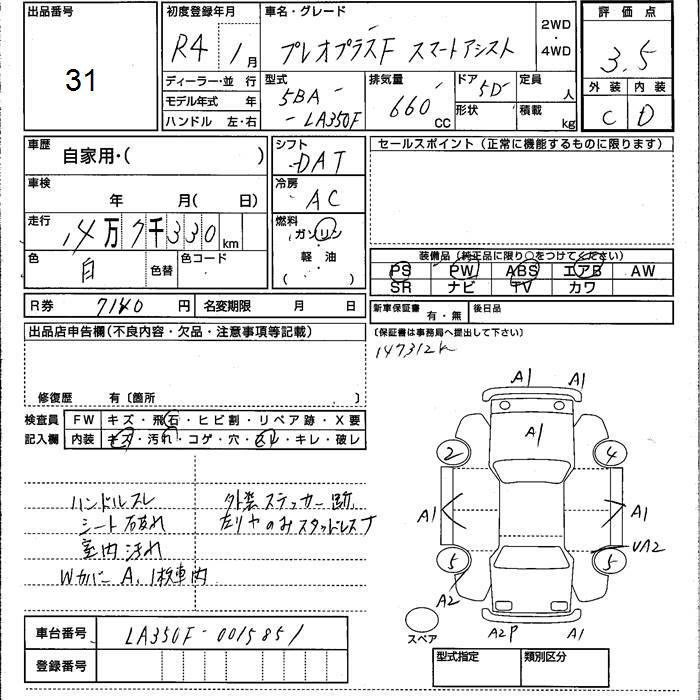 出品番号
31
初度登録年月
R4 1月
ディーラー・並行
モデル年式 年
ハンドル 左・右
車名・グレード
プレオプラスF スマートアシスト
2WD
・
4WD
型式
5BA-
-LA350F
排気量
660
CC
ドア
5D
形状
定員
人
積載
kg
評価点
3.5
外装
内装
C
D
車歴
自家用・( )
車検
年 月( 日)
走行
14万7千330km
色
白
色替
色コード
シフト
DAT
冷房
AC
燃料
ガソリン
・
軽油
( )
セールスポイント(正常に機能するものに限ります)
装備品(純正品に限り○をつけてください)
PS PW ABS エアB AW
SR ナビ TV カワ
R券 7140円
名変期限 月 日
新車保証書
有・無
後日品
(保証書は事務局へ提出して下さい)
147312k
出品店申告欄(不良内容・欠品・注意事項等記載)
修復歴 有〔箇所 〕
検査員
記入欄
FW キズ・飛石・ヒビ割・リペア跡・X要
内装 キズ・汚れ・コゲ・穴・スレ・キレ・破レ
ハンドルスレ
シート破れ
室内汚れ
Wカバー A.1枚車内
外装ステッカー跡
左リヤのみスタッドレスT
A1 A1
A1
2 4
A1 A1
UA2
5 5
A2
A2P A1
スペア
車台番号 LA350F-0015851
登録番号
型式指定 類別区分